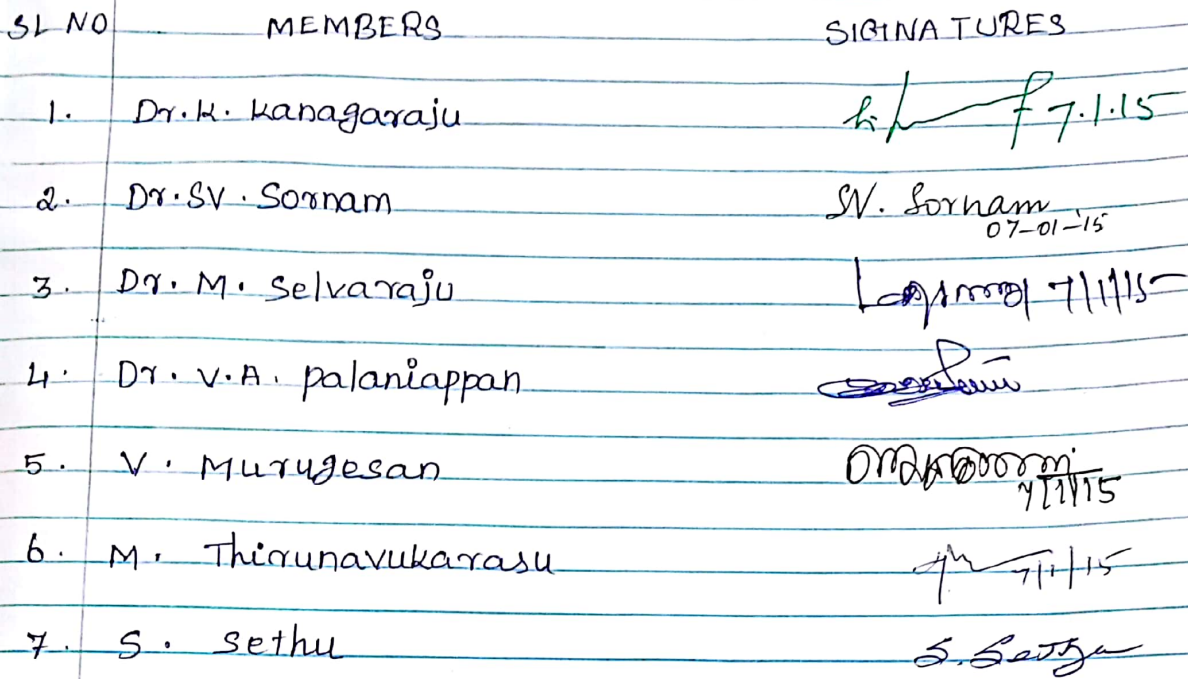 SL NO MEMBERS SIGINATURES
1. Dr. K. Kanagaraju 7.1.15
2. Dr. SV. Sornam SV. Sornam
07-01-15
3. Dr. M. Selvaraju 7/1/15
4. Dr. V.A. palaniappan
5. V. Murugesan
7/1/15
6. M. Thirunavukarasu 7/1/15
7. S. Sethu